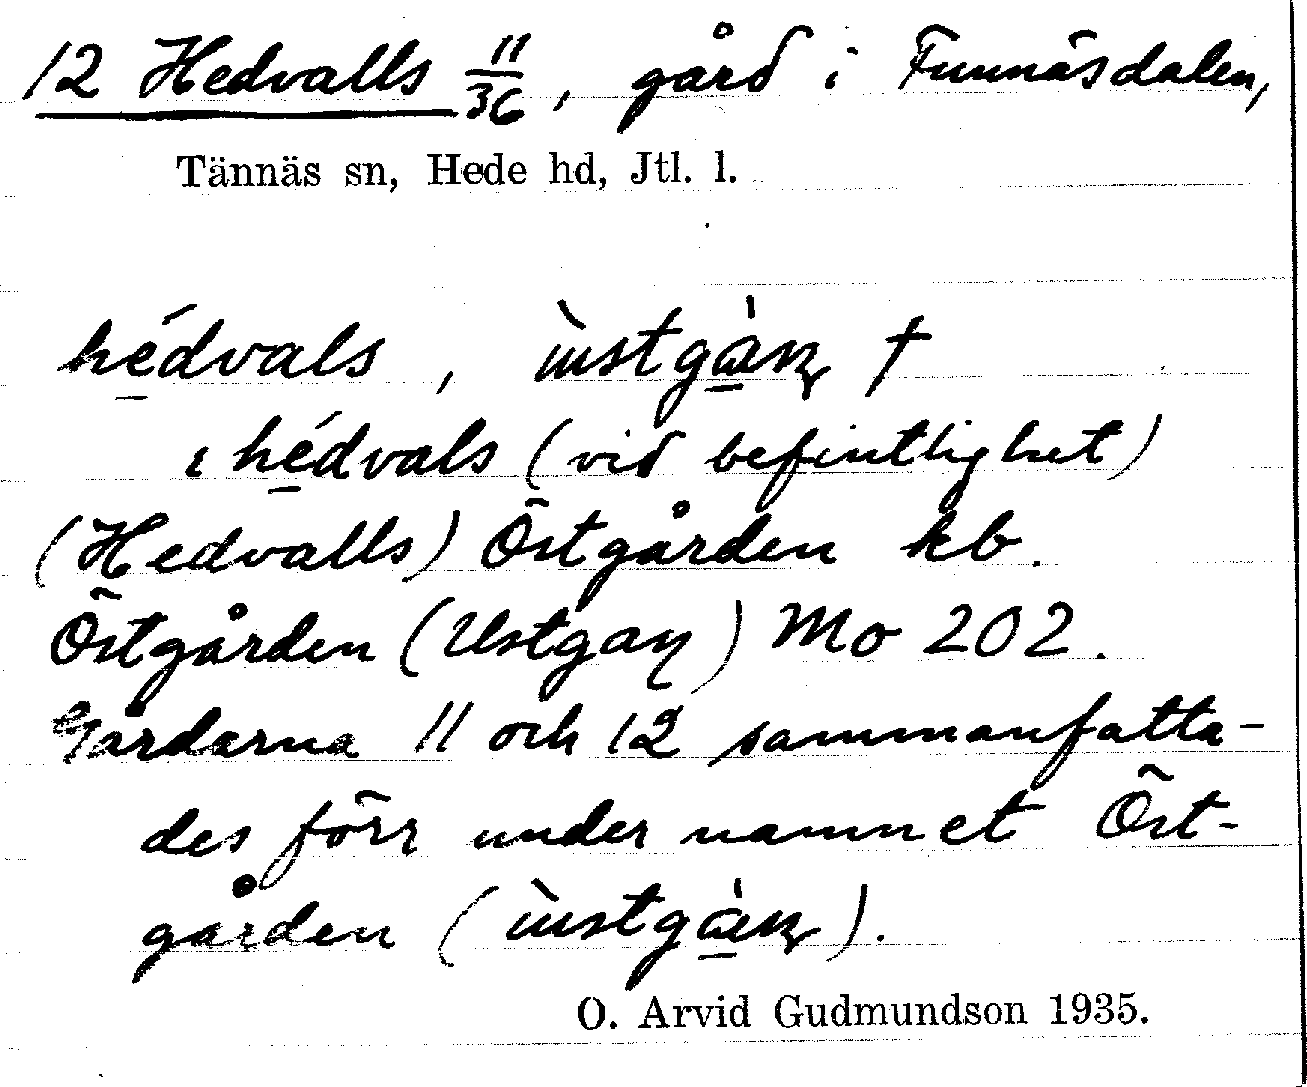 12 Hedvalls 11/36, gård i Funnäsdalen,
Tännäs sn, Hede hd, Jtl. l.
hédvals, 
ɩ hédvals (vid befintlighet)
(Hedvalls) Östgården kb.
Östgården (Ustgaɳ) Mo 202.
Gårdarna 11 och 12 sammanfatta-
des förr under namnet Öst-
gården
O. Arvid Gudmundson 1935.